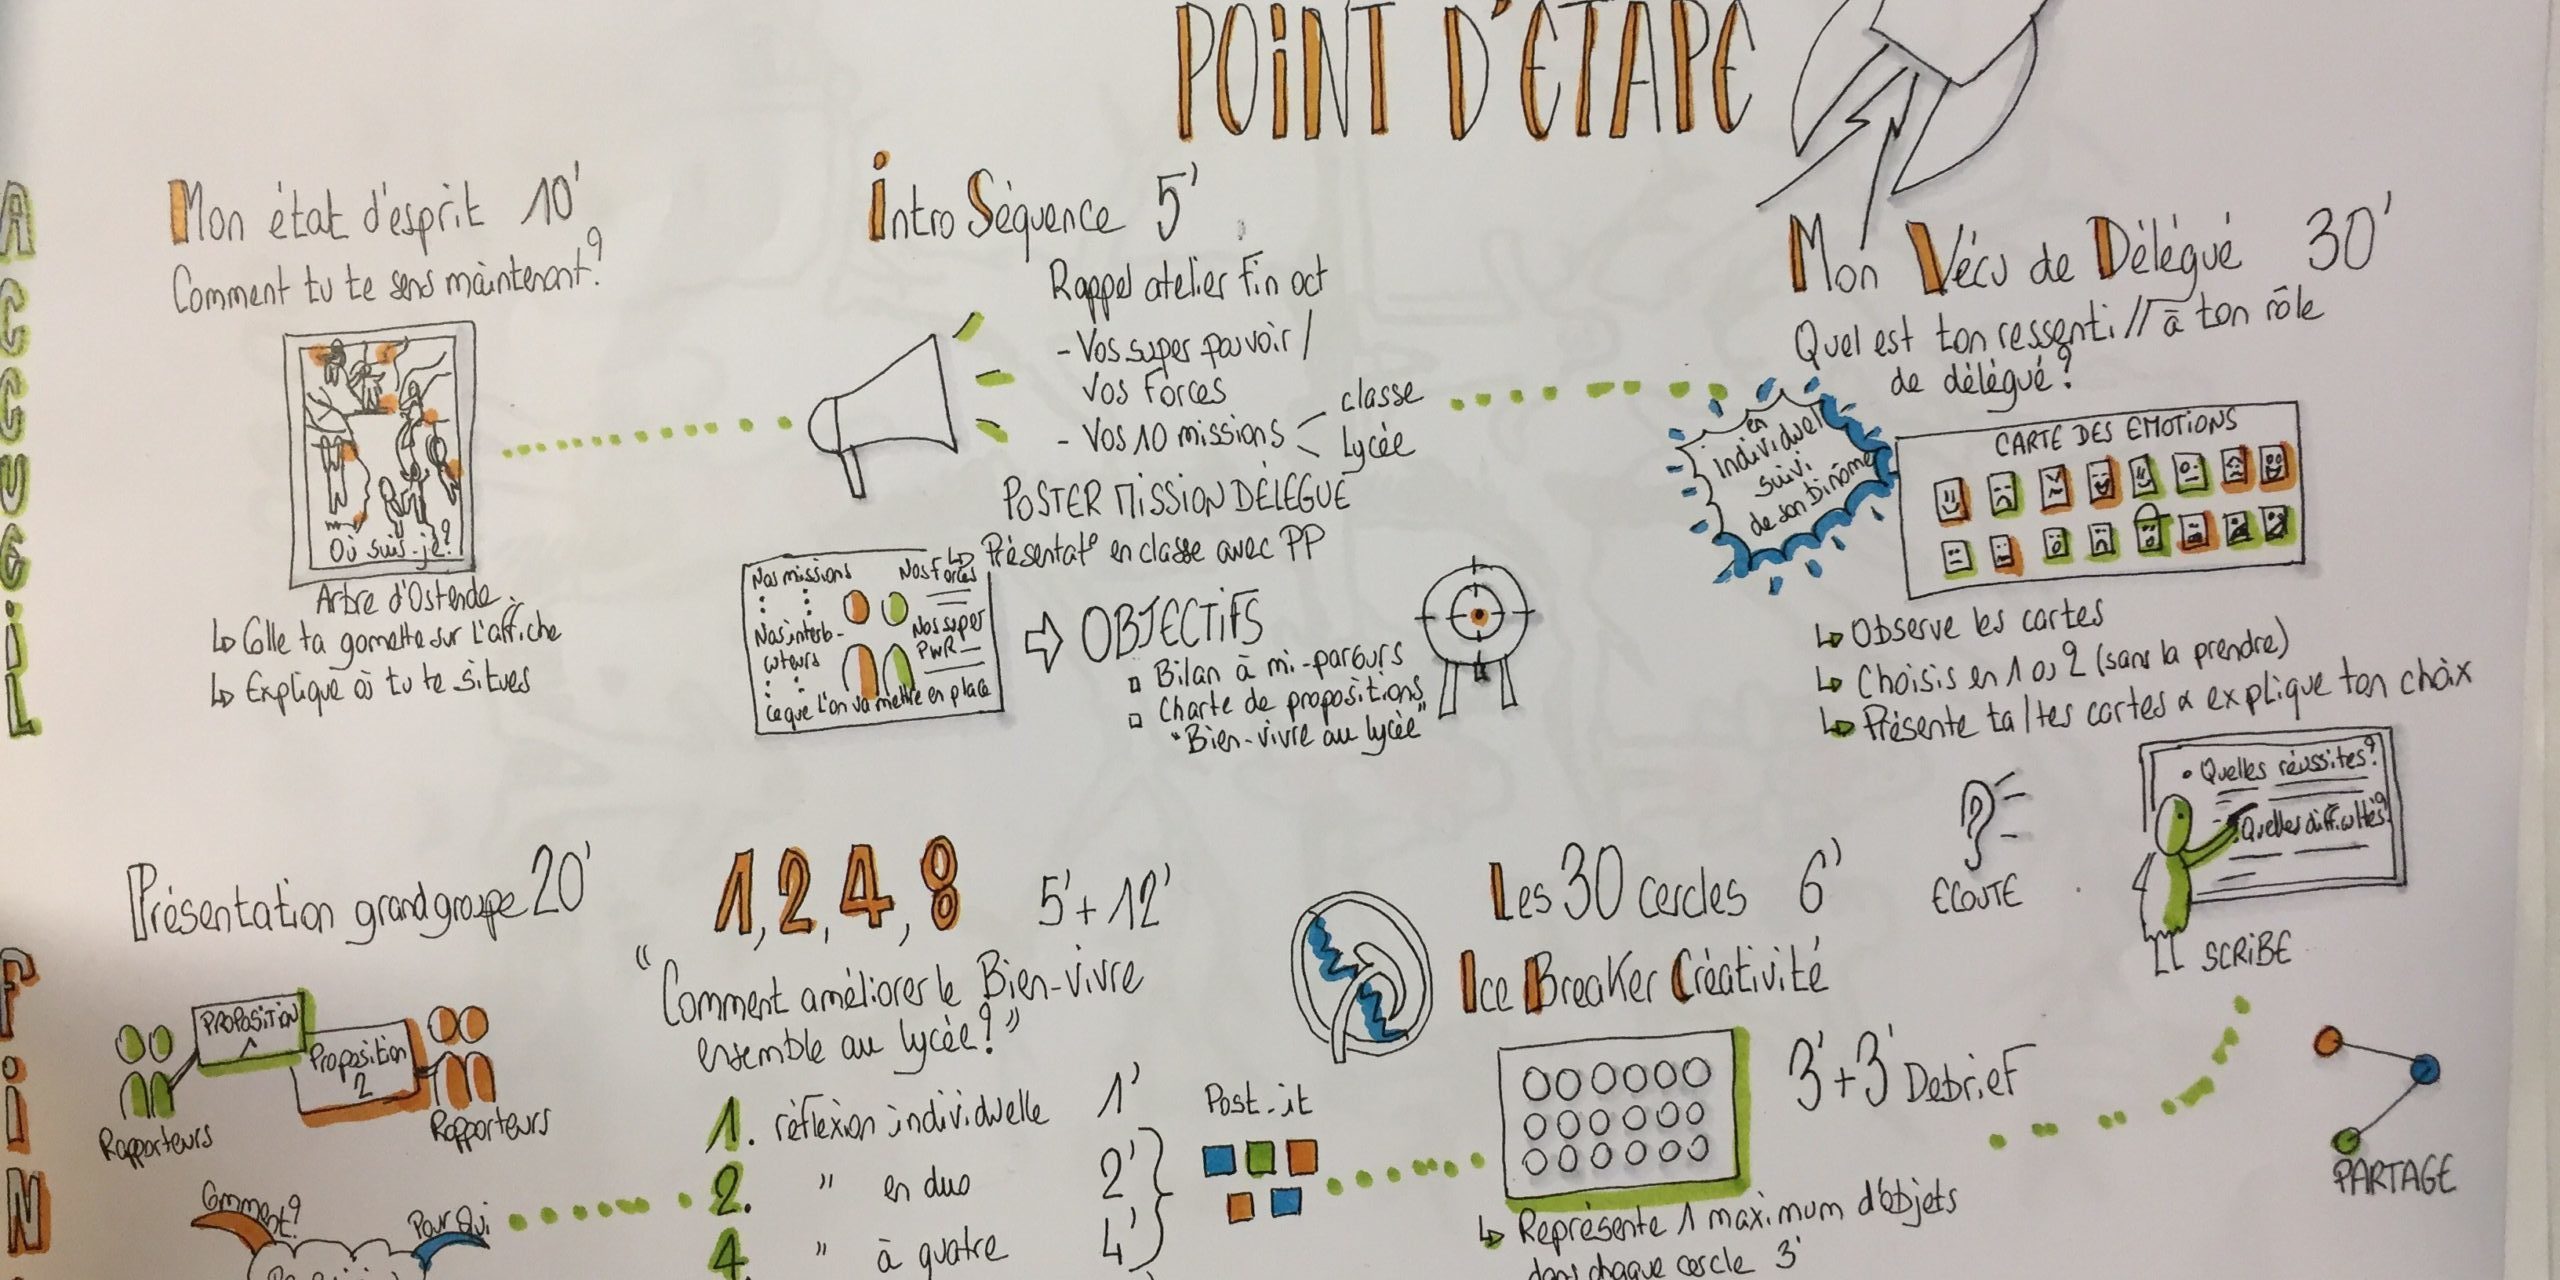 POINT D'ÉTAPE
ACCUEIL
Mon état d'esprit 10'
Comment tu te sens maintenant?
Où suis-je?
Arbre d'Ostende
Colle ta gomette sur l'affiche
Explique où tu te situes
Intro Séquence 5'
Rappel atelier fin oct
- Vos super pouvoir /
vos forces
- Vos 10 missions
classe
lycée
POSTER MISSION DÉLÉGUÉ
Présentat° en classe avec PP
Nos missions
Nos forces
Nos interlo-
cuteurs
Nos super
PWR
Ce que l'on va mettre en place
OBJECTIFS
Bilan à mi-parcours
Charte de propositions
"Bien-vivre au lycée"
Mon Vécu de Délégué 30'
Quel est ton ressenti // à ton rôle
de délégué?
en
individuel
suivi
de son binôme
CARTE DES EMOTIONS
Observe les cartes
Choisis en 1 ou 2 (sans la prendre)
Présente ta/tes cartes & explique ton choix
• Quelles réussites?
Quelles difficultés?
ECOUTE
SCRIBE
PARTAGE
Les 30 cercles 6'
Ice Breaker Créativité
3'+3' Debrief
Représente 1 maximum d'objets
dans chaque cercle 3'
1, 2, 4, 8 5'+12'
"Comment améliorer le Bien-vivre
ensemble au lycée?"
1. réflexion individuelle 1'
2. " en duo 2'
4. " à quatre 4'
Post-it
Présentation grand groupe 20'
PROPOSITION
1
Proposition
2
Rapporteurs
Rapporteurs
Comment?
Pour Qui
FIN